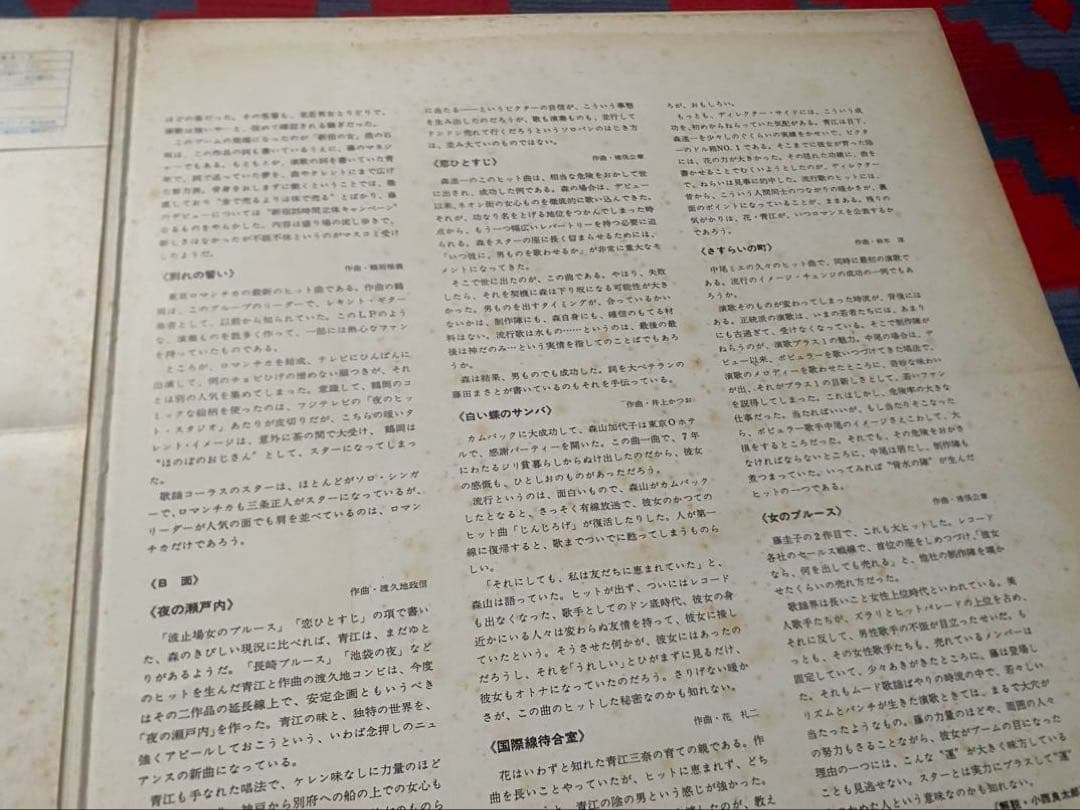 《別れの誓い》
東京ロマンチカの最新のヒット曲である。作曲の鶴
岡は、このグループのリーダーで、レキント・ギター
奏者として、以前から知られていた。このLPのよう
な、演奏ものを数多く作って、一部には熱心なファン
を持っていたものである。
ところが、ロマンチカを結成、テレビにひんぱんに
出演して、例のチョビひげの憎めない顔つきが、それ
とは別の人気を集めてしまった。意識して、鶴岡のコ
ミックな絵柄を使ったのは、フジテレビの「夜のヒッ
ト・スタジオ」あたりが皮切りだが、こちらの暖いタ
レント・イメージは、意外に茶の間で大受け、鶴岡は
“ほのぼのおじさん”として、スターになってしまっ
た。
歌謡コーラスのスターは、ほとんどがソロ・シンガ
ーで、ロマンチカも三条正人がスターになっているが、
リーダーが人気の面でも肩を並べているのは、ロマン
チカだけであろう。
《B 面》
《夜の瀬戸内》
作曲・渡久地政信
「波止場女のブルース」「恋ひとすじ」の項で書い
た、森のきびしい現況に比べれば、青江は、まだゆと
りがあるようだ。「長崎ブルース」「池袋の夜」など
のヒットを生んだ青江と作曲の渡久地コンビは、今度
はその二作品の延長線上で、安定企画ともいうべき
「夜の瀬戸内」を作った。青江の味と、独特の世界を、
強くアピールしておこうという、いわば念押しのニュ
アンスの新曲になっている。
青江も手なれた唱法で、ケレン味なしに力量のほど
に当たる――というビクターの自信が、こういう事態
を生み出したのだろうが、歌も演奏ものも、並行して
ドンドン売れて行くだろうというソロバンのはじき方
は、並み大ていのものではない。
《恋ひとすじ》
作曲・猪俣公章
森進一のこのヒット曲は、相当な危険をおかして世
に出され、成功した例である。森の場合は、デビュー
以来、ネオン街の女心ものを徹底的に歌い込んできた。
それが、功なり名をとげる地位をつかんでしまった時
点から、もう一つ幅広いレパートリーを持つ必要に迫
られる。森をスターの座に長く留まらせるためには、
「いつ彼に、男ものを歌わせるか」が非常に重大なモ
メントになってきた。
そこで世に出たのが、この曲である。やはり、失敗
したら、それを契機に森は下り坂になる可能性が大き
かった。男ものを出すタイミングが、合っているかい
ないかは、制作陣にも、森自身にも、確信のもてる材
料はない。流行歌は水もの……というのは、最後の最
後は神だのみ…という実情を指してのことばでもあろ
う。
森は結果、男ものでも成功した。詞を大ベテランの
藤田まさとが書いているのもそれを手伝っている。
《白い蝶のサンバ》
作曲・井上かつお
カムバックに大成功して、森山加代子は東京Oホテ
ルで、感謝パーティーを開いた。この曲一曲で、7年
にわたるジリ貧暮しからぬけ出したのだから、彼女
の感慨も、ひとしおのものがあっただろう。
流行というのは、面白いもので、森山がカムバック
したとなると、さっそく有線放送で、彼女のかつての
ヒット曲「じんじろげ」が復活したりした。人が第一
線に復帰すると、歌までついでに甦ってしまうものら
しい。
「それにしても、私は友だちに恵まれていた」と、
森山は語っていた。ヒットが出ず、ついにはレコード
も出なくなった、歌手としてのドン底時代、彼女の身
近かにいる人々は変わらぬ友情を持って、彼女に接し
ていたという。そうさせた何かが、彼女にはあったの
だろうし、それを「うれしい」とひがまずに見るだけ、
彼女もオトナになっていたのだろう。さりげない暖か
さが、この曲のヒットした秘密なのかも知れない。
《国際線待合室》
作曲・花 礼二
花はいわずと知れた青江三奈の育ての親である。作
曲を長いことやっていたが、ヒットに恵まれず、どち
かといえば、青江の陰の男という感じが強かった。
ちが、おもしろい。
もっとも、ディレクター・サイドには、こういう成
功を、初めからねらっていた気配がある。青江は目下、
森進一を少々しのぐぐらいの実績をかせいで、ビクタ
ーのドル箱NO.1である。そこまでに彼女が育った陰
には、花の力が大きかった。その隠れた功績に、曲を
書かせることでむくいようとしたのが、ディレクター
で、ねらいは見事に的中した。流行歌のヒットには、
昔から、こういう人間同士のつながりの暖かさが、裏
面のポイントになっていることが、ままある。残りの
気がかりは、花・青江が、いつロマンスを公表するか
であろう。
《さすらいの町》
作曲・鈴木 淳
中尾ミエの久々のヒット曲で、同時に最初の演歌で
ある。流行のイメージ・チェンジの成功の一例でもあ
ろうか。
演歌そのものが変わってしまった時流が、背後には
ある。正統派の演歌は、いまの若者たちには、あまり
にも古過ぎて、受けなくなっている。そこで制作陣が
ねらうのが、演歌プラス1の魅力。中尾の場合は、デ
ビュー以来、ポピュラーを歌いつづけてきた唱法で、
演歌のメロディーを歌わせたところに、奇妙な味わい
が出、それがプラス1の目新しさとして、若いファン
を説得してしまった。これはしかし、危険率の大きな
仕事だった。当たればいいが、もし当たりそこなった
ら、ポピュラー歌手中尾のイメージさえこわして、大
損をするところだった。それでも、その危険をおかさ
なければならないところに、中尾は居たし、制作陣も
煮つまっていた。いってみれば“背水の陣”が生んだ
ヒットの一つである。
《女のブルース》
作曲・猪俣公章
藤圭子の2作目で、これも大ヒットした。レコード
各社のセールス戦線で、首位の座をしめつづけ、「彼女
なら、何を出しても売れる」と、他社の制作陣を嘆か
せたくらいの売れ方だった。
歌謡界は長いこと女性上位時代といわれている。美
人歌手たちが、ズラリとヒットパレードの上位を占め、
それに反して、男性歌手の不振が目立ったせいだ。も
っとも、その女性歌手たちも、売れているメンバーは
固定していて、少々あきがきたところに、藤は登場し
た。それもムード歌謡ばやりの時流の中で、若々しい
リズムとパンチが生きた演歌ときては、まるで大穴が
当たったようなもの。藤の力量のほどや、周囲の人々
の努力もさることながら、彼女がブームの目になった
理由の一つには、こんな“運”が大きく味方している
ことも見逃せない。スターとは実力にプラスして“運”